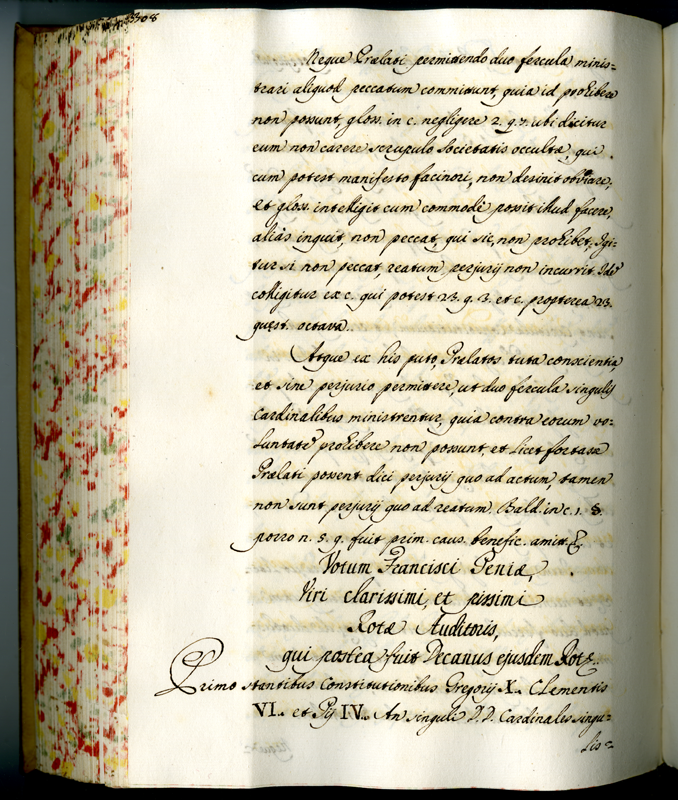 308
Neque Prælati permittendo duo fercula minis=
trari aliquod peccatum committunt, quia id prohibere
non possunt, gloss. in c. negligere 2. q. 7. ubi dicitur
eum non carere scrupulo Societatis occultæ, qui
cum potest manifesto facinori, non desinit obviare,
et gloss. intelligit cum commodè possit illud facere,
aliàs inquit, non peccat, qui sic, non prohibet, Igi=
tur si non peccat, reatum perjurij non incurrit. Ide
colligitur ex c. qui potest 23. q. 3. et c. propterea 23.
quæst. octava.
Atque ex his puto, Prælatos tuta conscientia,
et sine perjurio permittere, ut duo fercula singulis
Cardinalibus ministrentur, quia contra eorum vo=
luntate prohibere non possunt, et licet fortasse
Prælati possent dici perjurij quo ad actum, tamen
non sunt perjurij quo ad reatum. Bald. in c. 1. §.
porro n. 5. q. fuit prim. caus. benefic. amitt. &.
Votum Francisci Peniæ,
Viri clarissimi, et pissimi
Rotæ Auditoris,
qui postea fuit Decanus ejusdem Rotæ.
Primo stantibus Constitutionibus Gregorij X., Clementis
VI., et Pij IV., An singuli D.D. Cardinales singu=
lis=